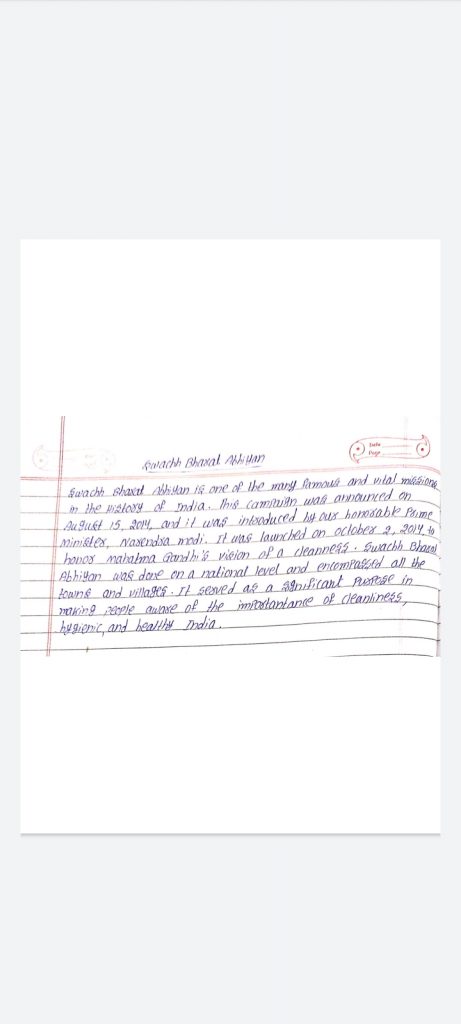 Date
Page
Swachh Bharat Abhiyan
Swachh Bharat Abhiyan is one of the many famous and vital missions
in the history of India. This campaign was announced on
August 15, 2014, and it was introduced by our honorable Prime
Minister, Narendra modi. It was launched on october 2, 2014, to
honor mahatma Gandhi's vision of a cleanness. Swachh Bharat
Abhiyan was done on a national level and encompassed all the
towns and villages. It served as a significant purpose in
making people aware of the importantance of cleanliness,
hygienic, and healthy India.